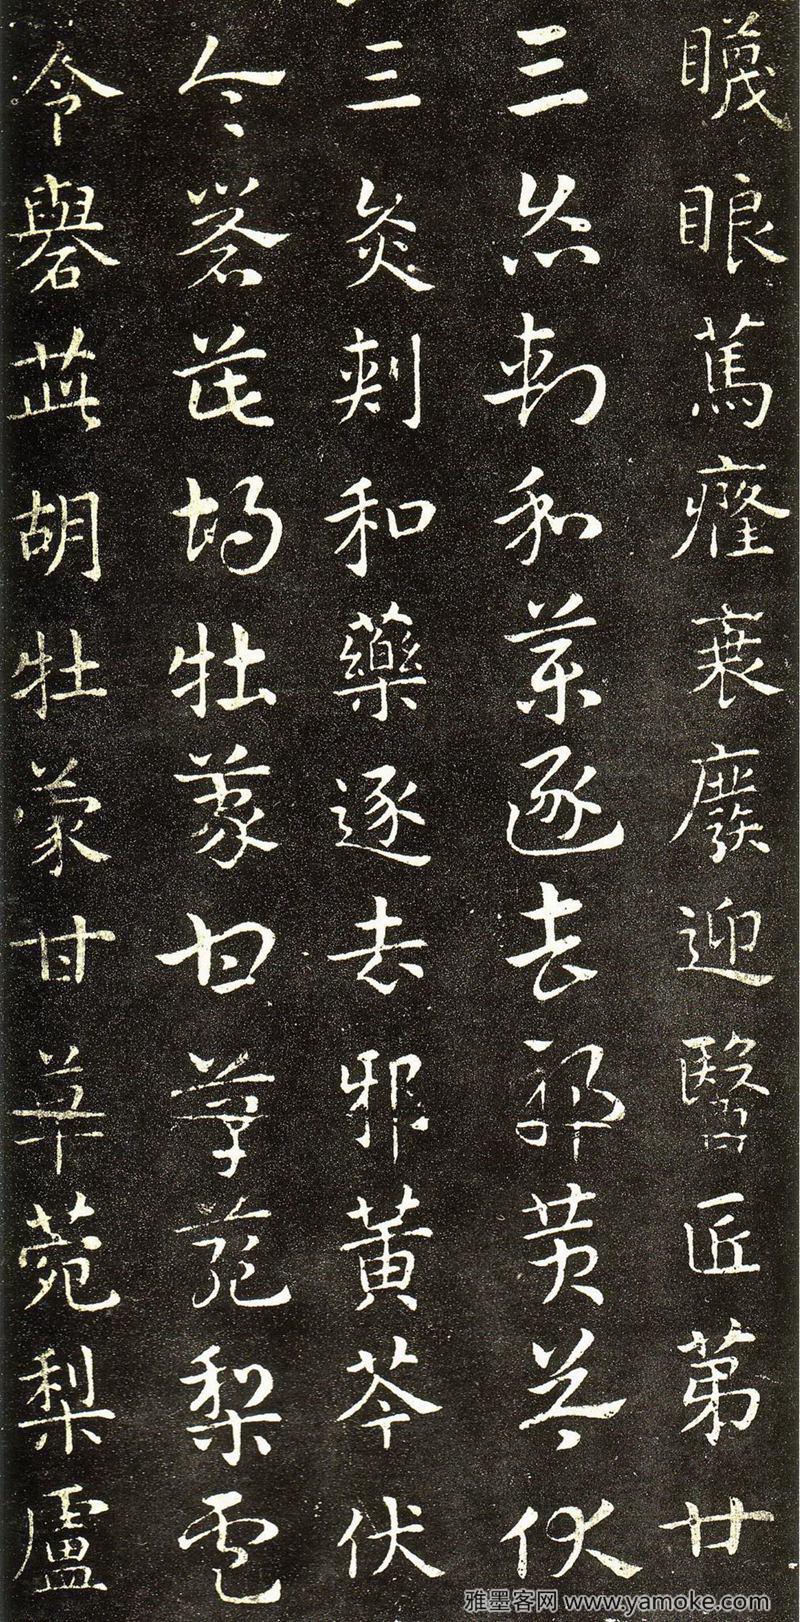 䁾眼篤癃衰廢迎醫匠第廿
三灸刺和藥逐去邪黃芩伏
三灸刺和藥逐去邪黃芩伏
令礜茈胡牡蒙甘草菀梨盧
令礜茈胡牡蒙甘草菀梨盧
雅墨客网 www.yamoke.com